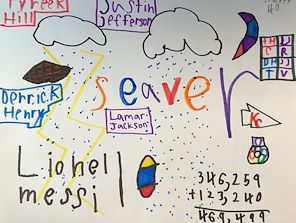 Tyreek
Hill
Justin
Jefferson
40
seaver
Derrick
Henry
Lamar
Jackson
KC
Lionell
messi 10
346,259
+123,240
469,499